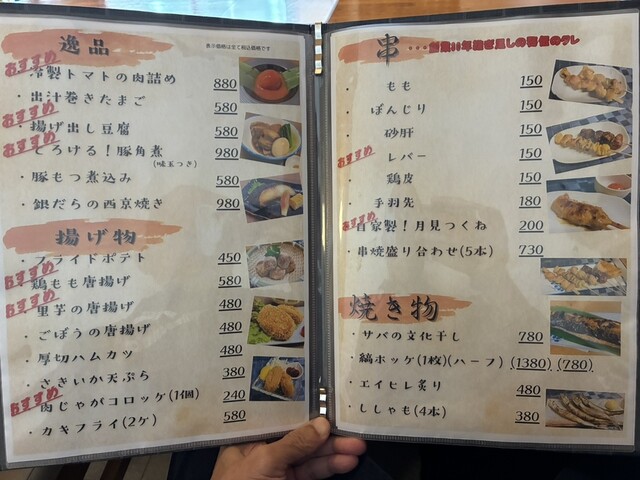 逸品
表示価格は全て税込価格です
おすすめ
冷製トマトの肉詰め 880
・出汁巻きたまご 580
おすすめ
・揚げ出し豆腐 580
おすすめ
とろける！豚角煮 980
(味玉つき)
・豚もつ煮込み 580
・銀だらの西京焼き 980
揚げ物
・フライドポテト 450
おすすめ
鶏もも唐揚げ 480
おすすめ
里芋の唐揚げ 480
・ごぼうの唐揚げ 480
・厚切ハムカツ 480
・さきいか天ぷら 380
おすすめ
肉じゃがコロッケ(1個) 240
・カキフライ(2ケ) 580
串 ・・・創業30年継ぎ足しの秘伝のタレ
・もも 150
・ぼんじり 150
・砂肝 150
おすすめ
レバー 150
・鶏皮 150
・手羽先 180
おすすめ
自家製！月見つくね 200
・串焼盛り合わせ(5本) 730
焼き物
・サバの文化干し 780
・縞ホッケ(1枚)(ハーフ) (1380) (780)
・エイヒレ炙り 480
・ししゃも(4本) 380